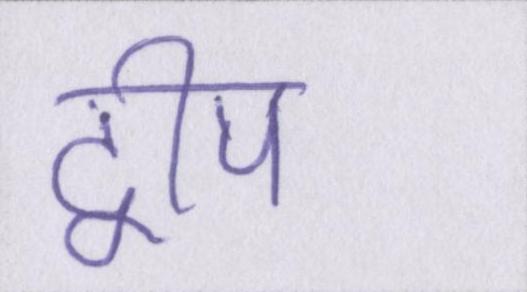 द्वीप